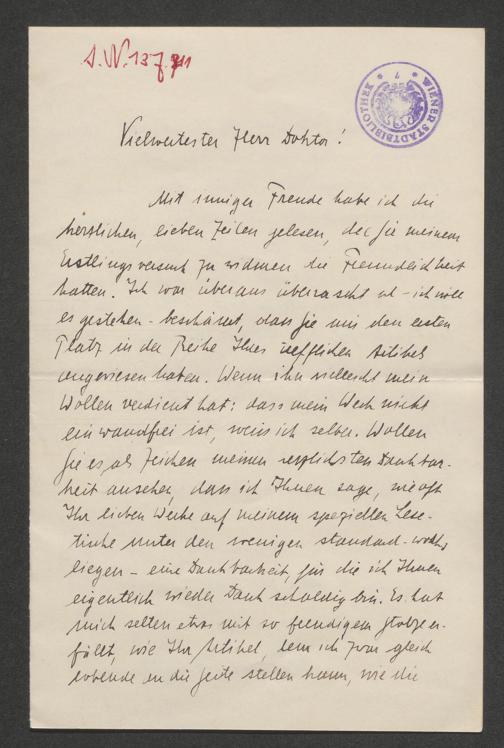 I.N. 137.711
WIENER STADTBIBLIOTHEK
Vielwertester Herr Doktor!
Mit inniger Freude habe ich die
herzlichen, lieben Zeilen gelesen, die Sie meinem
Erstlingsversuch zu widmen die Freundlichkeit
hatten. Ich war überaus überrascht und – ich will
es gestehen – beschämt, dass Sie mir den ersten
Platz in der Reihe Ihres trefflichen Artikels
angewiesen haben. Wenn ihn vielleicht mein
Wollen verdient hat: dass mein Werk nicht
einwandfrei ist, weiss ich selber. Wollen
Sie es als Zeichen meiner herzlichsten Dankbar-
keit ansehen, dass ich Ihnen sage, wie oft
Ihr lieben Werke auf meinem speziellen Lese-
tische unter den wenigen standard-works
liegen – eine Dankbarkeit, für die ich Ihnen
eigentlich wieder Dank schuldig bin. Es hat
mich selten etwas mit so freudigem Stolz er-
füllt, wie Ihr Artikel, dem ich zwar gleich
lobende an die Seite stellen kann, wie die